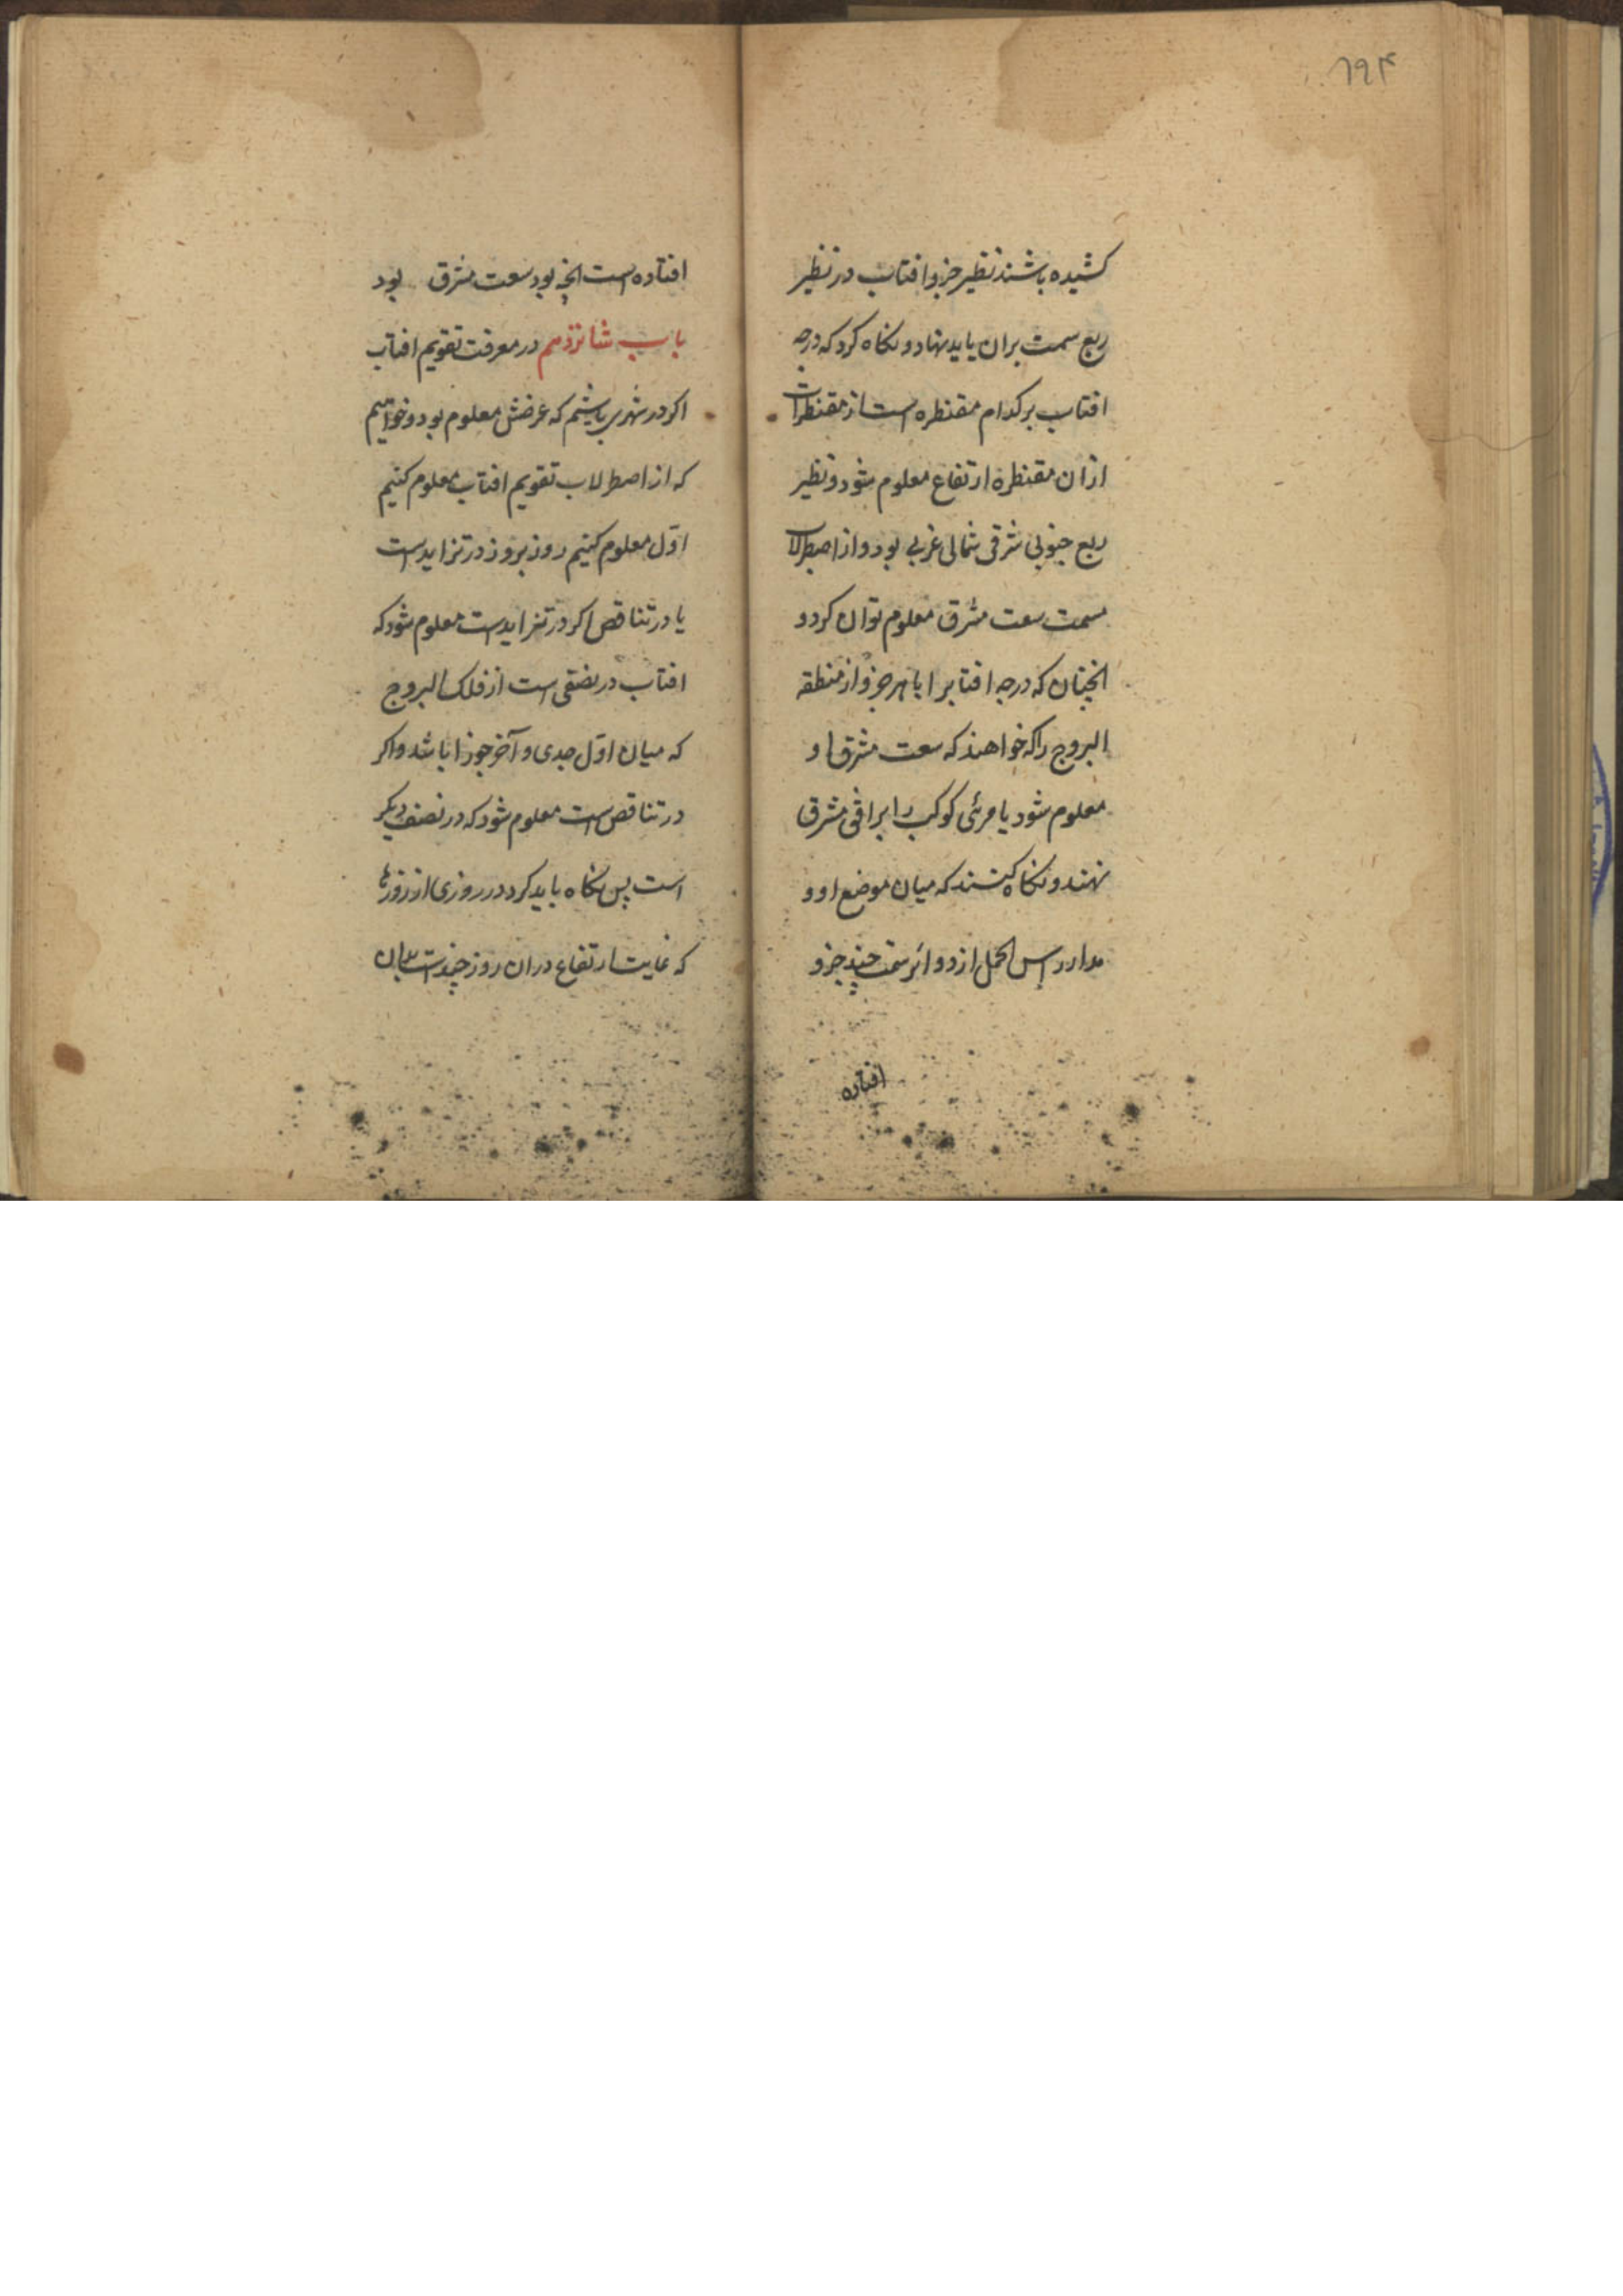 ۶۹۴
کشیده باشند نظیر جزو افتاب در نظیر
ربع سمت بران باید نهاد و نکاه کرد که درجه
افتاب بر کدام مقنطره است از مقنطرات
ازان مقنطره ارتفاع معلوم شود و نظیر
ربع جنوبی شرقی شمالی غربی بود و از اصطرلاب
سمت سعت مشرق معلوم توان کرد و
انچنان که درجه افتابرا یا هر جزو از منطقه
البروج را که خواهند که سعت مشرق او
معلوم شود یا مرئی کوکب را بر افق مشرق
نهند و نکاه کنند که میان موضع او و
مدار راس الحمل از دوائر سمت چند جزو
افتاده
افتاده است انچه بود سعت مشرق بود
باب شانزدهم در معرفت تقویم افتاب
اکر در شهری باشیم که عرضش معلوم بود و خواهیم
که از اصطرلاب تقویم افتاب معلوم کنیم
اوّل معلوم کنیم روز بروز در تزایدست
یا در تناقص اکر در تزایدست معلوم شود که
افتاب در نصفی است از فلک البروج
که میان اوّل جدی و آخر جوزا باشد و اکر
در تناقص است معلوم شود که در نصف دیکر
است پس نکاه باید کرد در روزی از روزها
که غایت ارتفاع دران روز چندست